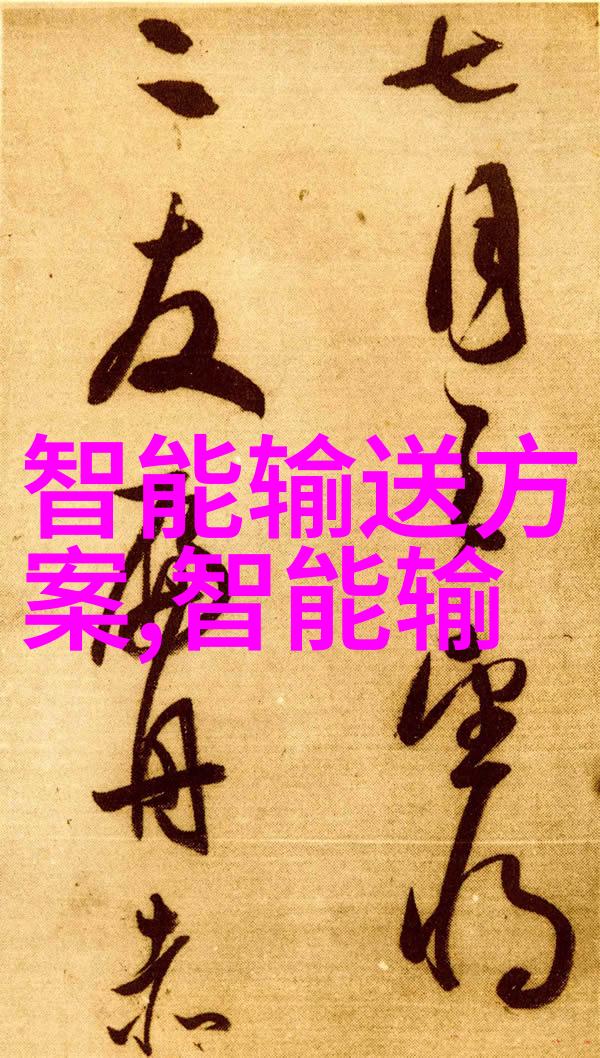 七月望将
二友丹赤
智能输送方
案,智能输